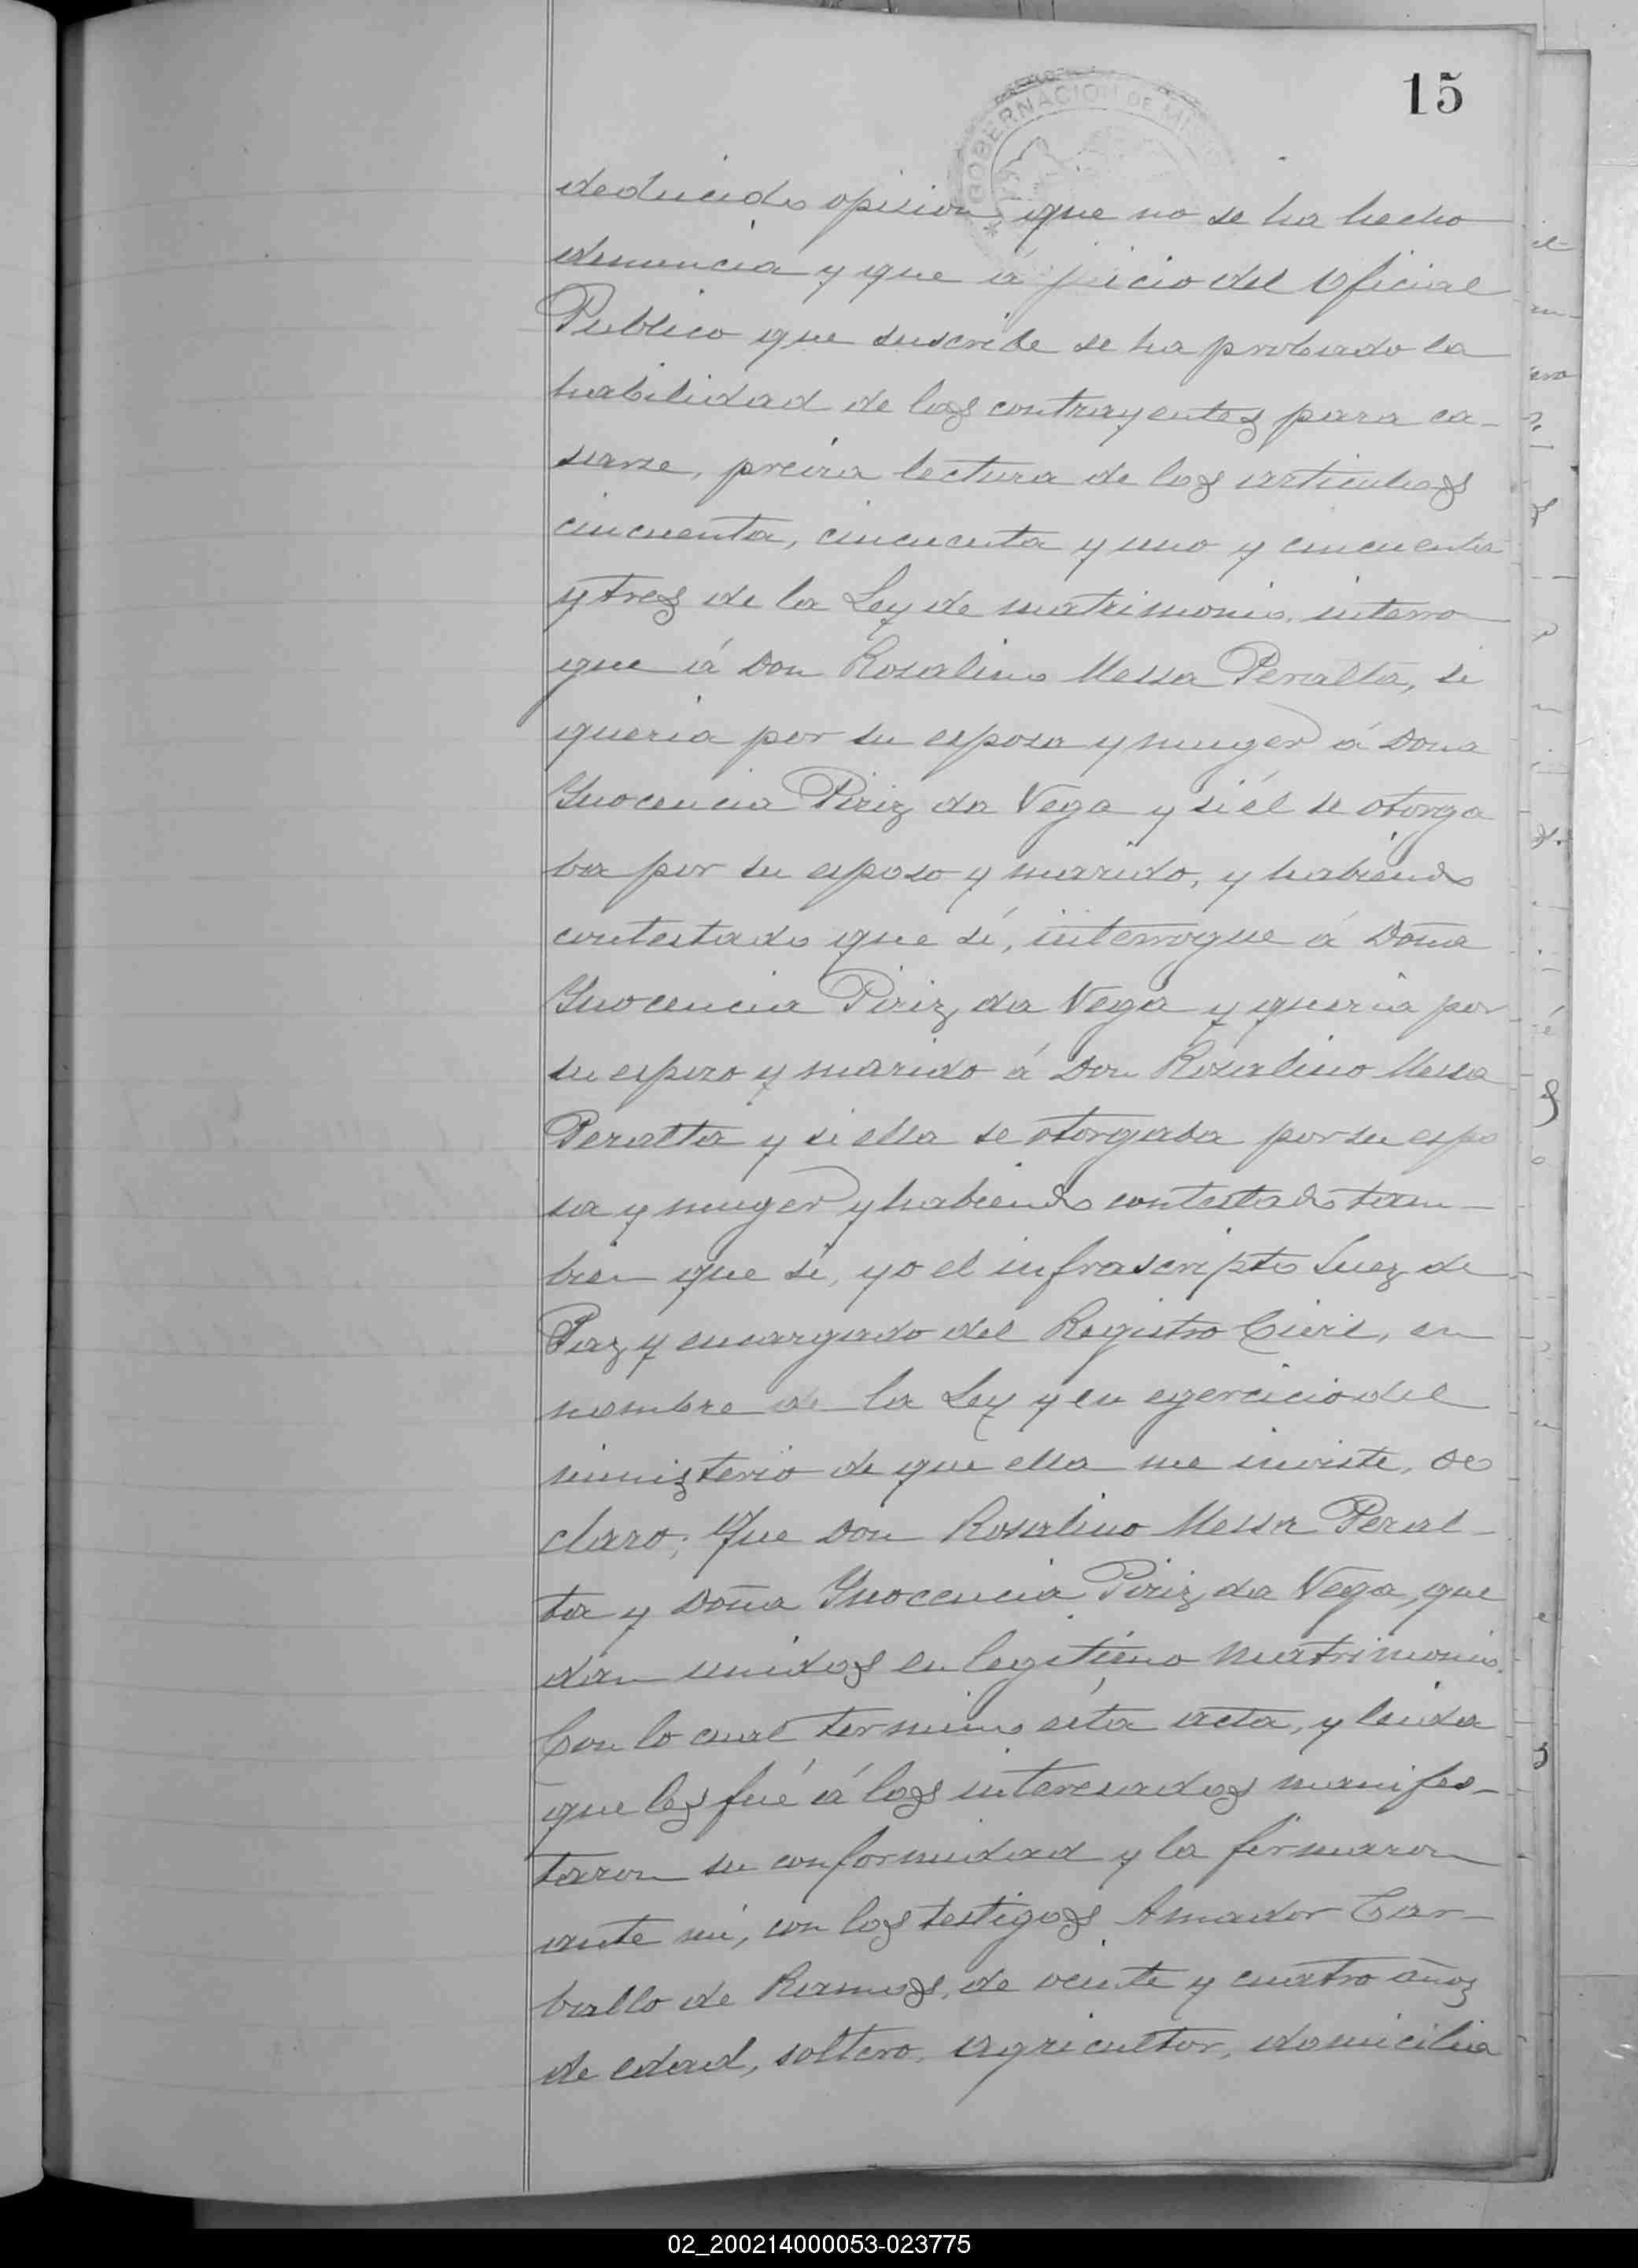 15
GOBERNACION DE MI
deducido opision, que no se ha hecho
denuncia y que á juicio del Oficial
Publico que suscribe se ha probado la
habilidad de los contrayentes para ca-
sarse, previa lectura de los articulos
cincuenta, cincuenta y uno y cincuenta
y tres de la Ley de matrimonio, interro
que á Don Rosalino Messa Peralta, si
queria por su esposa y muger á Dona
Ynocencia Piriz da Vega y si él se otorga
ba por su esposo y marido, y habiendo
contestado que sí, interrogue á Doña
Ynocencia Piriz da Vega y queria por
su esposo y marido á Don Rosalino Messa
Peralta y si ella se otorgaba por su espo
sa y muger y habiendo contestado tam-
bien que si, yo el infrascripto Juez de
Paz y encargado del Registro Civil, en
nombre de la Ley y en egercicio del
ministerio de que ella me inviste, de
claro; Que Don Rosalino Messa Peral-
ta y Doña Ynocencia Piriz da Vega, que
dan unidos en legitimo matrimonio.
Con lo cual termino ésta acta, y leida
que les fué á los interesados manifes-
taron su conformidad y la firmaron
ante mi, con los testigos Amador Car-
ballo de Ramos, de veinte y cuatro años
de edad, soltero, agricultor, domicilia
02_200214000053-023775